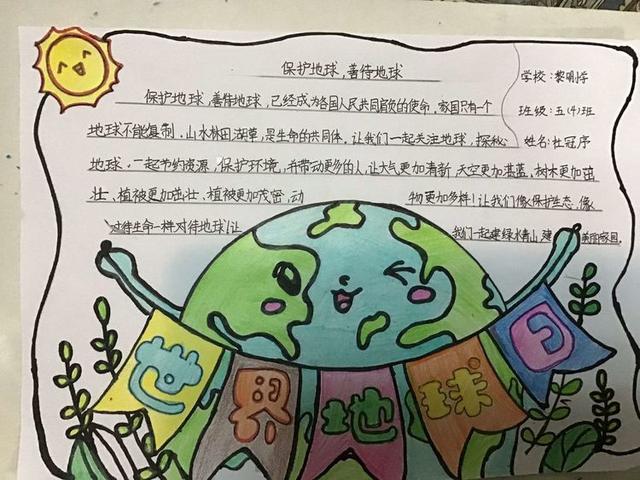 保护地球,善待地球
学校:黎明小学
保护地球,善待地球,已经成为各国人民共同的使命,家国只有一个
班级:五(4)班
地球不能复制.山水林田湖草,是生命的共同体.让我们一起关注地球,探秘
姓名:杜冠序
地球.一起节约资源,保护环境,并带动更多的人,让大气更加清新,天空更加湛蓝,树木更加茁
壮、植被更加茁壮、植被更加茂密,动 物更加多样!让我们像保护生态、像
对待生命一样对待地球!让 我们一起建绿水青山,建美丽家园.
世界地球日